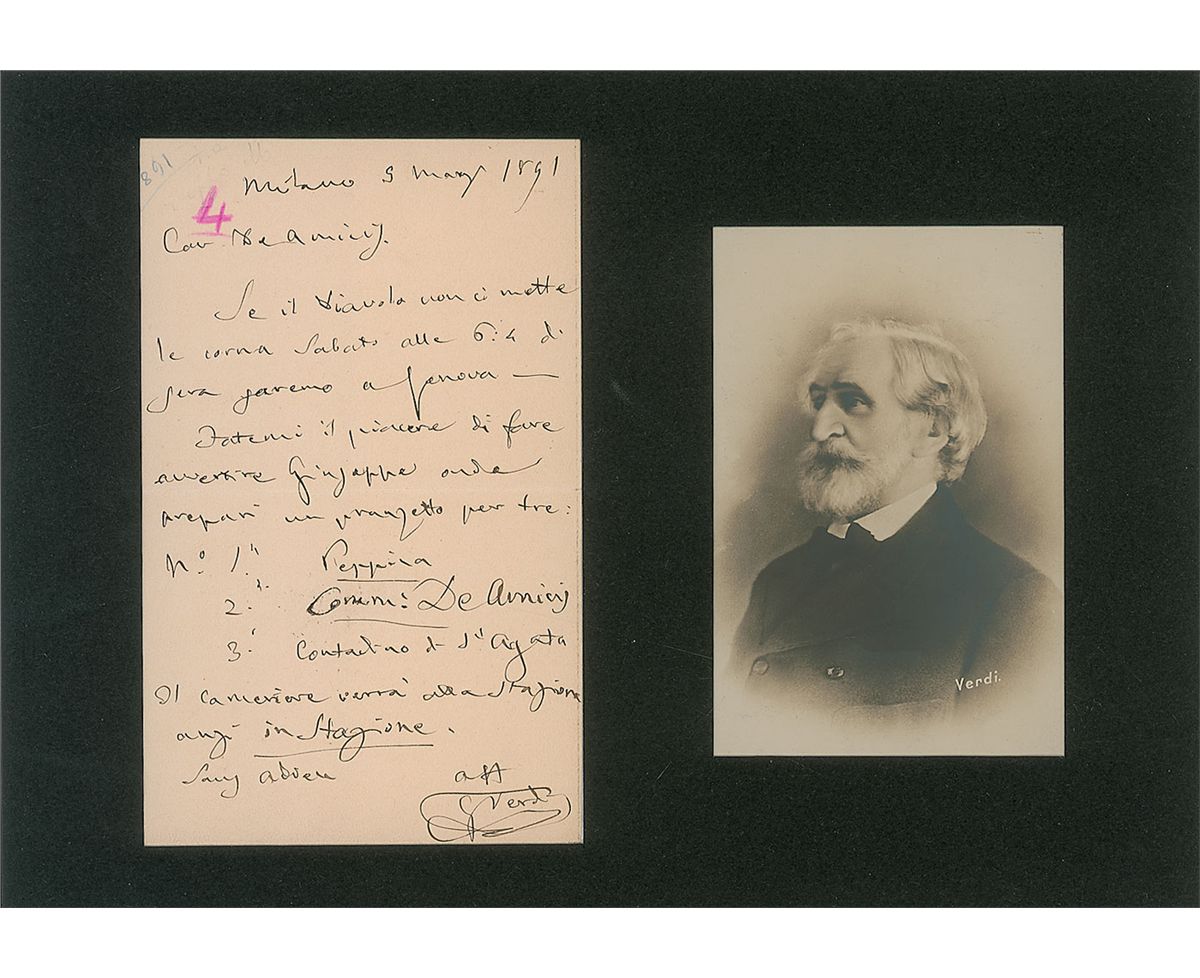 891
4
Milano 5 marzo 1891
Cav. De Amicis.
Se il Diavolo non ci mette
le corna Sabato alle 6:4 di
sera saremo a Genova —
Fatemi il piacere di fare
avvertire Giuseppe onde
prepari un pranzetto per tre:
N.º 1.º Peppina
2.º Comm.: De Amicis
3.º Contadino di St Agata
Il cameriere verrà alla Stagione
anzi in Stagione.
addieu aff
G Verdi
Verdi.